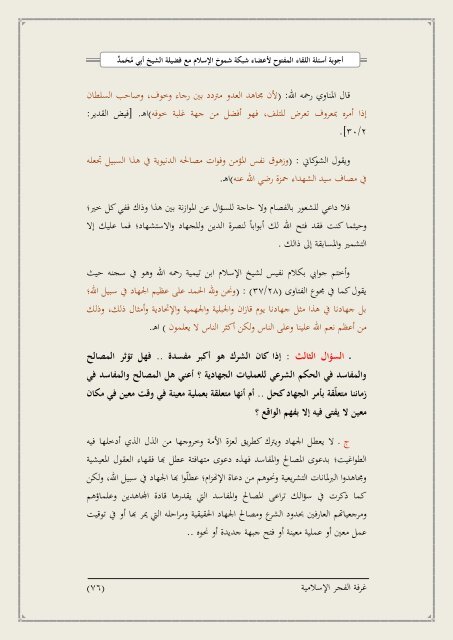 أجوبة أسئلة اللقاء المفتوح لأعضاء شبكة شموخ الإسلام مع فضيلة الشيخ أبي مُحَمدٌ
قال المناوي رحمه الله: (لأن مجاهد العدو متردد بين رجاء وخوف، وصاحب السلطان
إذا أمره بمعروف تعرض للتلف، فهو أفضل من جهة غلبة خوفه)اهـ. [فيض القدير:
٣٠/٢].
ويقول الشوكاني : (وزهوق نفس المؤمن وفوات مصالحه الدنيوية في هذا السبيل تجعله
في مصاف سيد الشهداء حمزة رضي الله عنه)اهـ.
فلا داعي للشعور بالفصام ولا حاجة للسؤال عن الموازنة بين هذا وذاك ففي كل خير؛
وحيثما كنت فقد فتح الله لك أبواباً لنصرة الدين وللجهاد والاستشهاد؛ فما عليك إلا
التشمير والمسابقة إلى ذالك .
وأختم جوابي بكلام نفيس لشيخ الإسلام ابن تيمية رحمه الله وهو في سجنه حيث
يقول كما في مجموع الفتاوى (٣٧/٢٨) : (ونحن ولله الحمد على عظيم الجهاد في سبيل الله؛
بل جهادنا في هذا مثل جهادنا يوم قازان والجبلية والجهمية والإتحادية وأمثال ذلك، وذلك
من أعظم نعم الله علينا وعلى الناس ولكن أكثر الناس لا يعلمون ) اهـ.
. السؤال الثالث : إذا كان الشرك هو أكبر مفسدة .. فهل تؤثر المصالح
والمفاسد في الحكم الشرعي للعمليات الجهادية ؟ أعني هل المصالح والمفاسد في
زماننا متعلّقة بأمر الجهاد ككل .. أم أنها متعلقة بعملية معينة في وقت معين في مكان
معين لا يفتى فيه إلا بفهم الواقع ؟
ج . لا يعطل الجهاد ويترك كطريق لعزة الأمة وخروجها من الذل الذي أدخلها فيه
الطواغيت؛ بدعوى المصالح والمفاسد فهذه دعوى متهافتة عطل بها فقهاء العقول المعيشية
ومجاهدوا البرلمانات التشريعية ونحوهم من دعاة الإنهزام؛ عطلّوا بها الجهاد في سبيل الله، ولكن
كما ذكرت في سؤالك تراعى المصالح والمفاسد التي يقدرها قادة المجاهدين وعلماؤهم
ومرجعياتهم العارفين بحدود الشرع ومصالح الجهاد الحقيقية ومراحله التي يمر بها أو في توقيت
عمل معين أو عملية معينة أو فتح جبهة جديدة أو نحوه ..
غرفة الفجر الإسلامية
(٧٦)